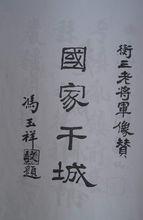 衛三老將軍像贊
國家干城
馮玉祥敬題